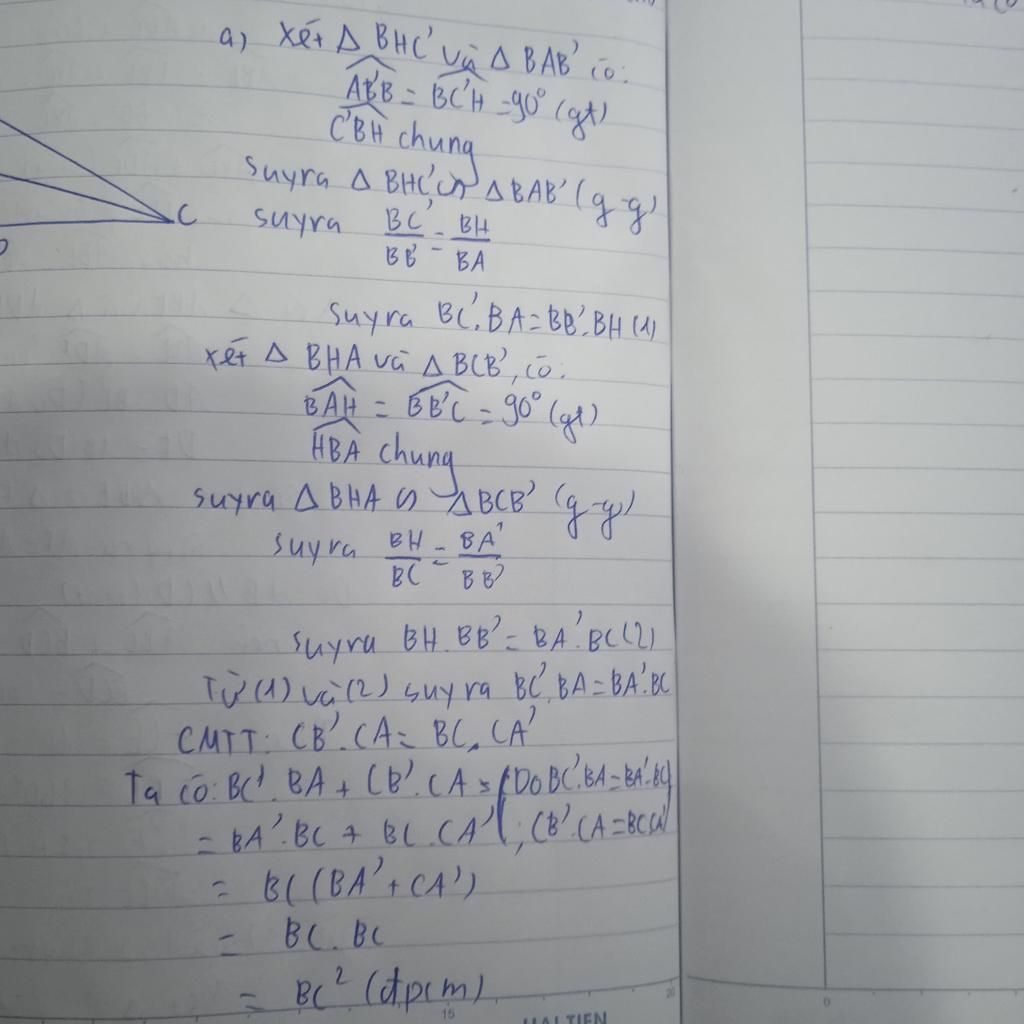 a) Xét Δ BHC' và Δ BAB' có:
AB'B = BC'H = 90° (gt)
C'BH chung
suyra Δ BHC' ∽ Δ BAB' (g-g)
C
suyra BC'/BB' = BH/BA
suyra BC'.BA = BB'.BH (1)
xét Δ BHA và Δ BCB', có:
BAH = BB'C = 90° (gt)
HBA chung
suyra Δ BHA ∽ Δ BCB' (g-g)
suyra BH/BC = BA'/BB'
suyra BH.BB' = BA'.BC (2)
Từ (1) và (2) suyra BC'.BA = BA'.BC
CMTT: CB'.CA = BC.CA'
Ta có: BC'.BA + CB'.CA = (Do BC'.BA = BA'.BC
= BA'.BC + BC.CA' ; CB'.CA = BC.CA')
= BC (BA' + CA')
= BC.BC
= BC² (đpcm)
15
20
0